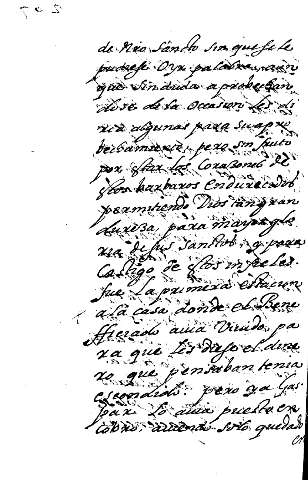 de Nro Sancto sin que se le
pudiese Oyr palabra, aun
que sin duda aprobechan
dose de la Occasion les di
ria algunas para su apro
bechamiento, pero sin fruto
por estar los Corazones de
estos barbaros endurecidos
permitiendo Dios tan gran
dureza, para mayor glo
ria de sus sanctos, y para
Castigo de estos infieles.
fue la primera estacion
a la casa donde el Bene
fficiado avia Vivido, pa
ra que les diesse el dine
ro que pensaban tenia
escondido: pero ya Gas
par lo avia puesto en
cobro. aviendo solo quedado